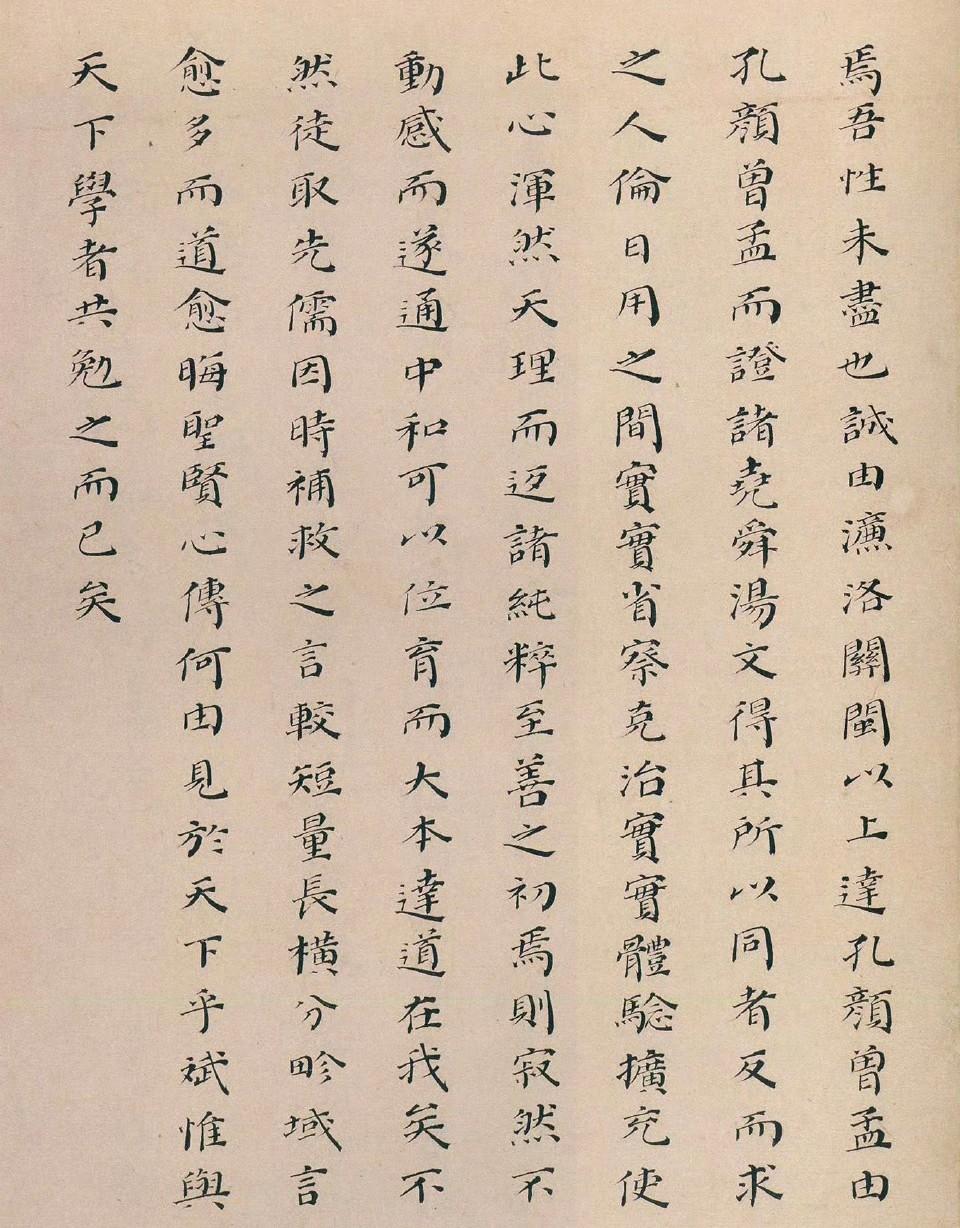 焉吾性未盡也誠由濂洛關閩以上達孔顏曾孟由
孔顏曾孟而證諸堯舜湯文得其所以同者反而求
之人倫日用之間實實省察克治實實體驗擴充使
此心渾然天理而返諸純粹至善之初焉則寂然不
動感而遂通中和可以位育而大本達道在我矣不
然徒取先儒因時補救之言較短量長橫分畛域言
愈多而道愈晦聖賢心傳何由見於天下乎斌惟與
天下學者共勉之而已矣